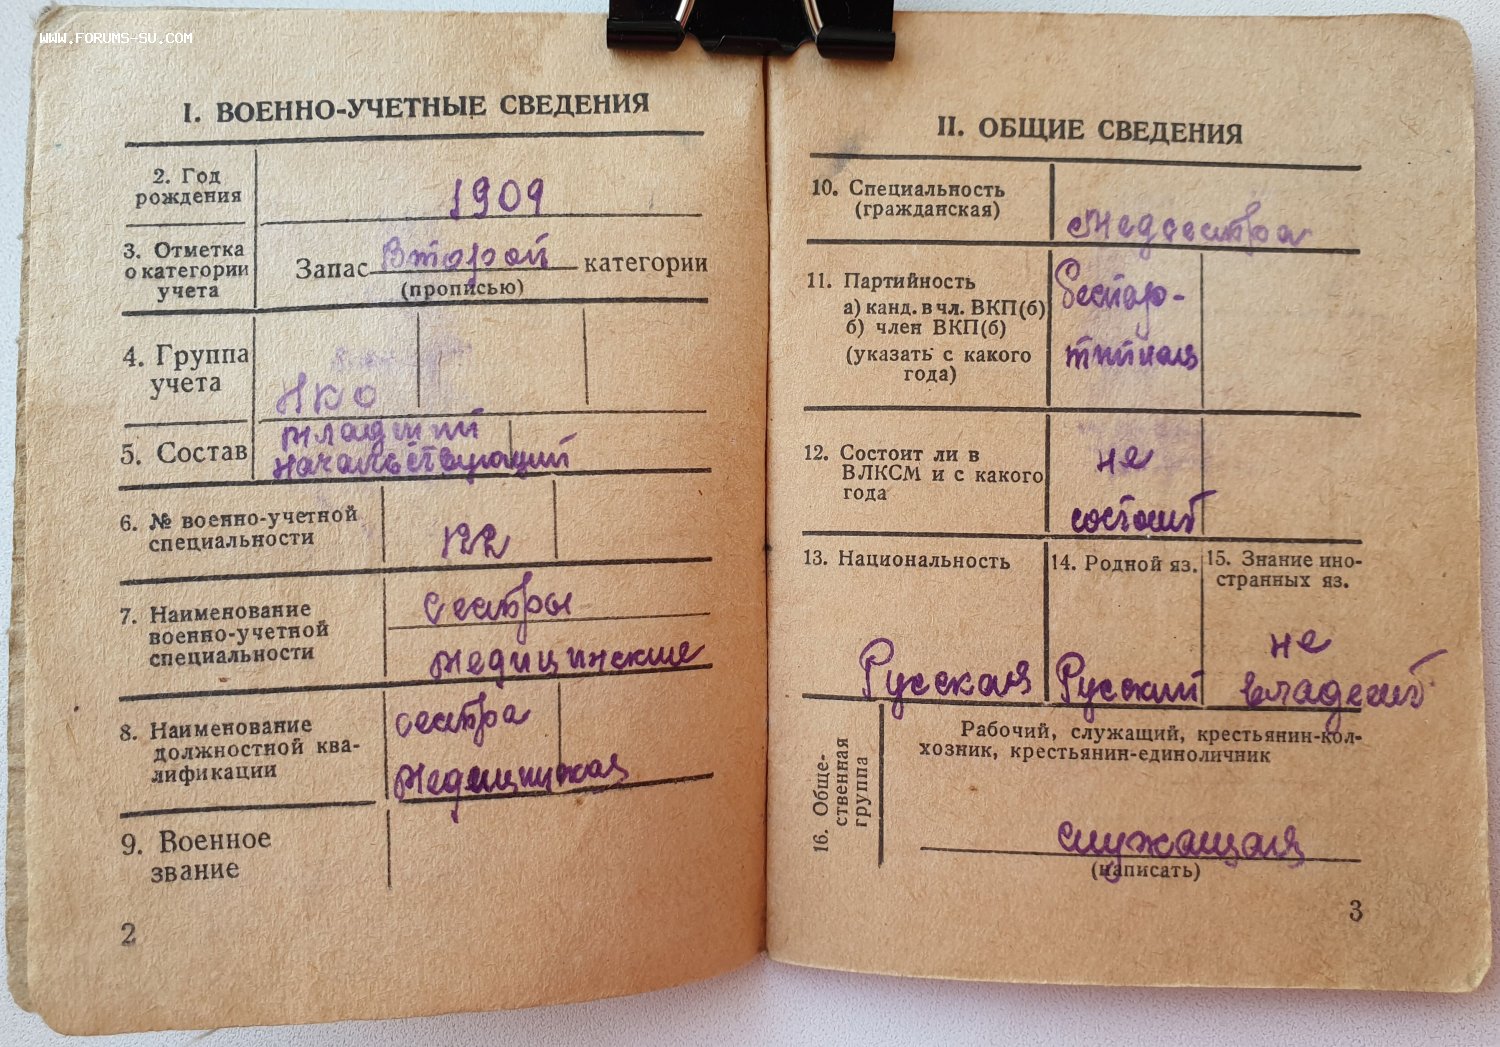 WWW.FORUMS-SU.COM
I. ВОЕННО-УЧЕТНЫЕ СВЕДЕНИЯ
2. Год
рождения
1909
3. Отметка
о категории
учета
Запас Второй категории
(прописью)
4. Группа
учета
НКО
5. Состав
младший
начальствующий
6. № военно-учетной
специальности
122
7. Наименование
военно-учетной
специальности
Сестры
медицинские
8. Наименование
должностной ква-
лификации
сестра
медицинская
9. Военное
звание
2
II. ОБЩИЕ СВЕДЕНИЯ
10. Специальность
(гражданская)
Медсестра
11. Партийность
а) канд. в чл. ВКП(б)
б) член ВКП(б)
(указать с какого
года)
Беспар-
тийная
12. Состоит ли в
ВЛКСМ и с какого
года
не
состоит
13. Национальность
Русская
14. Родной яз.
Русский
15. Знание ино-
странных яз.
не
владеет
16. Обще-
ственная
группа
Рабочий, служащий, крестьянин-кол-
хозник, крестьянин-единоличник
служащая
(написать)
3